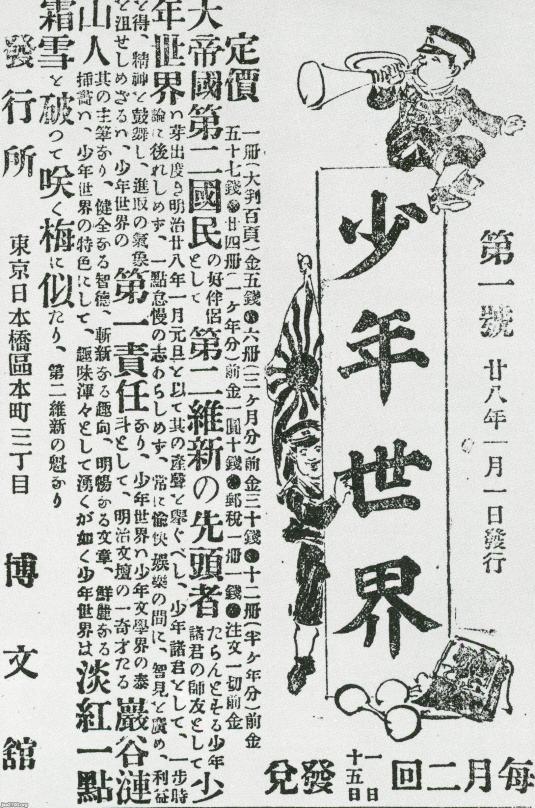 第一號 廿八年一月一日發行
少年世界
每月二回 一日 十五日 發兌
定價 一冊(大判百頁)金五錢●六冊(三ヶ月分)前金三十錢●十二冊(半ヶ年分)前金
五十七錢●廿四冊(一ヶ年分)前金一圓十錢●郵税一冊一錢●注文一切前金
大帝國第二國民としての好伴侶第二維新の先頭者たらんとする少年諸君の師友として少
年世界ハ芽出度き明治廿八年一月元旦と以て其の産聲と擧ぐべし、少年諸君として、一步時
論に後れしめず、一點怠慢の志わらしめず、常に愉快娯樂の間に、智見と廣め、利益
と得、精神と鼓舞し、進取の氣象
と沮せしめざるハ、少年世界の第一責任なり、少年世界ハ少年文學界の泰
斗として、明治文壇の一奇才たる巖谷漣
山人其の主筆なり、健全なる智德、斬新なる趣向、明暢なる文章、鮮麗なる
挿畵ハ、少年世界の特色にして、趣味渾々として湧くが如く少年世界は淡紅一點
霜雪と破つて咲く梅に似たり、第二維新の魁なり
發行所 東京日本橋區本町三丁目 博文館
jaa2100.org